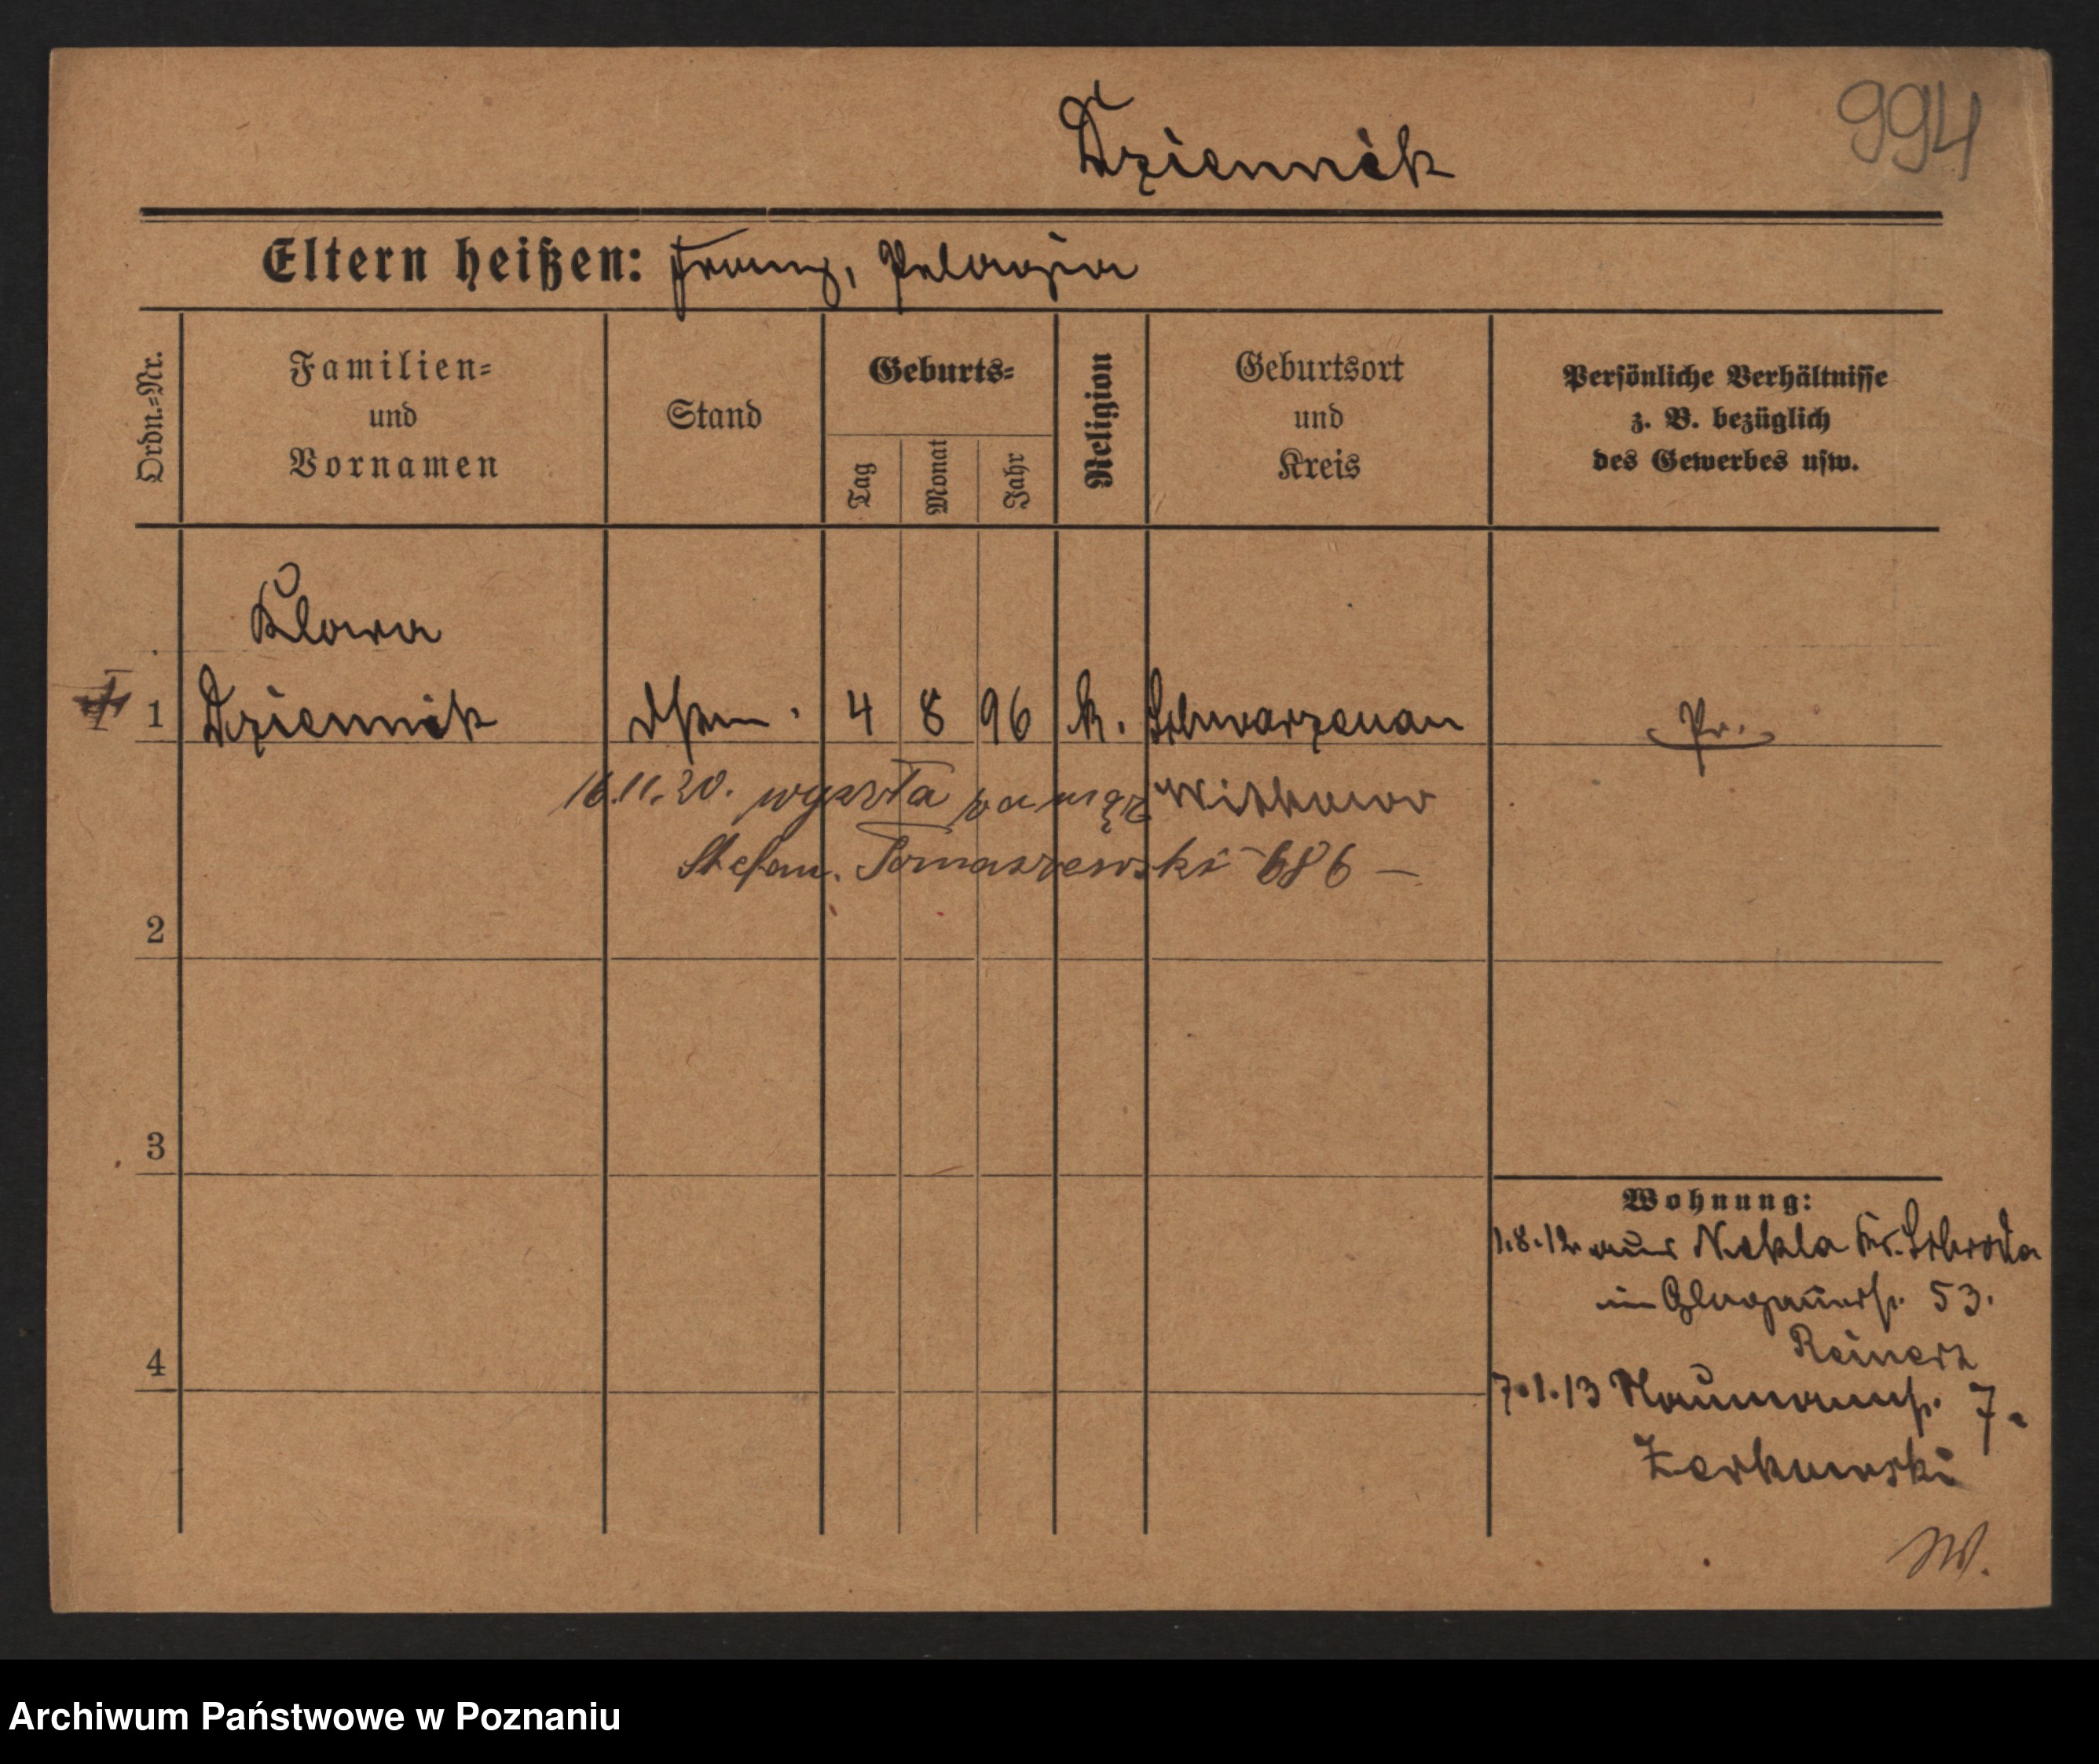 994
Dziennik
Eltern heißen: Franz, Pelagia
Ordn.=Nr.
Familien=
und
Vornamen
Stand
Geburts=
Tag
Monat
Jahr
Religion
Geburtsort
und
Kreis
Persönliche Verhältnisse
z. B. bezüglich
des Gewerbes usw.
Klara
1 Dziennik 4 8 96 k. Schwarzenau Pr.
16.11.20. wyszła za mąż Witkowo
Stefan. Tomaszewski 686 —
2
3
4
Wohnung:
1.8.12 aus Nekla Kr. Schroda
in Glogauerstr. 53.
Reinert
7.1.13 Naumannstr. 7.
Zerkowski
W.
Archiwum Państwowe w Poznaniu